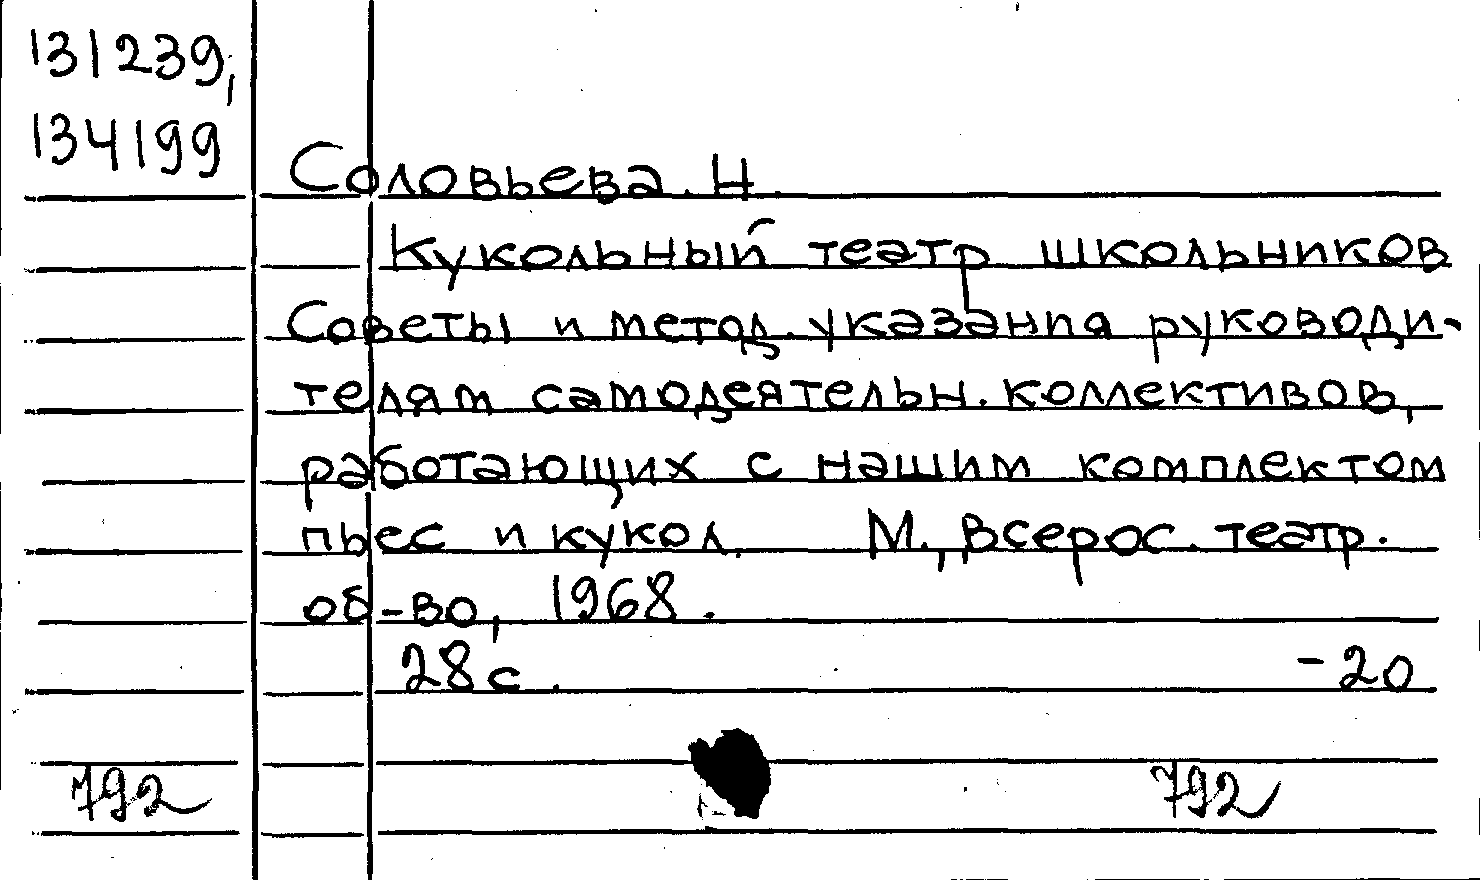 131239,
134199
Соловьева. Н.
Кукольный театр школьников
Советы и метод. указания руководи-
телям самодеятельн. коллективов,
работающих с нашим комплектом
пьес и кукол. М., Всерос. театр.
об-во, 1968.
28 с. -20
792 792